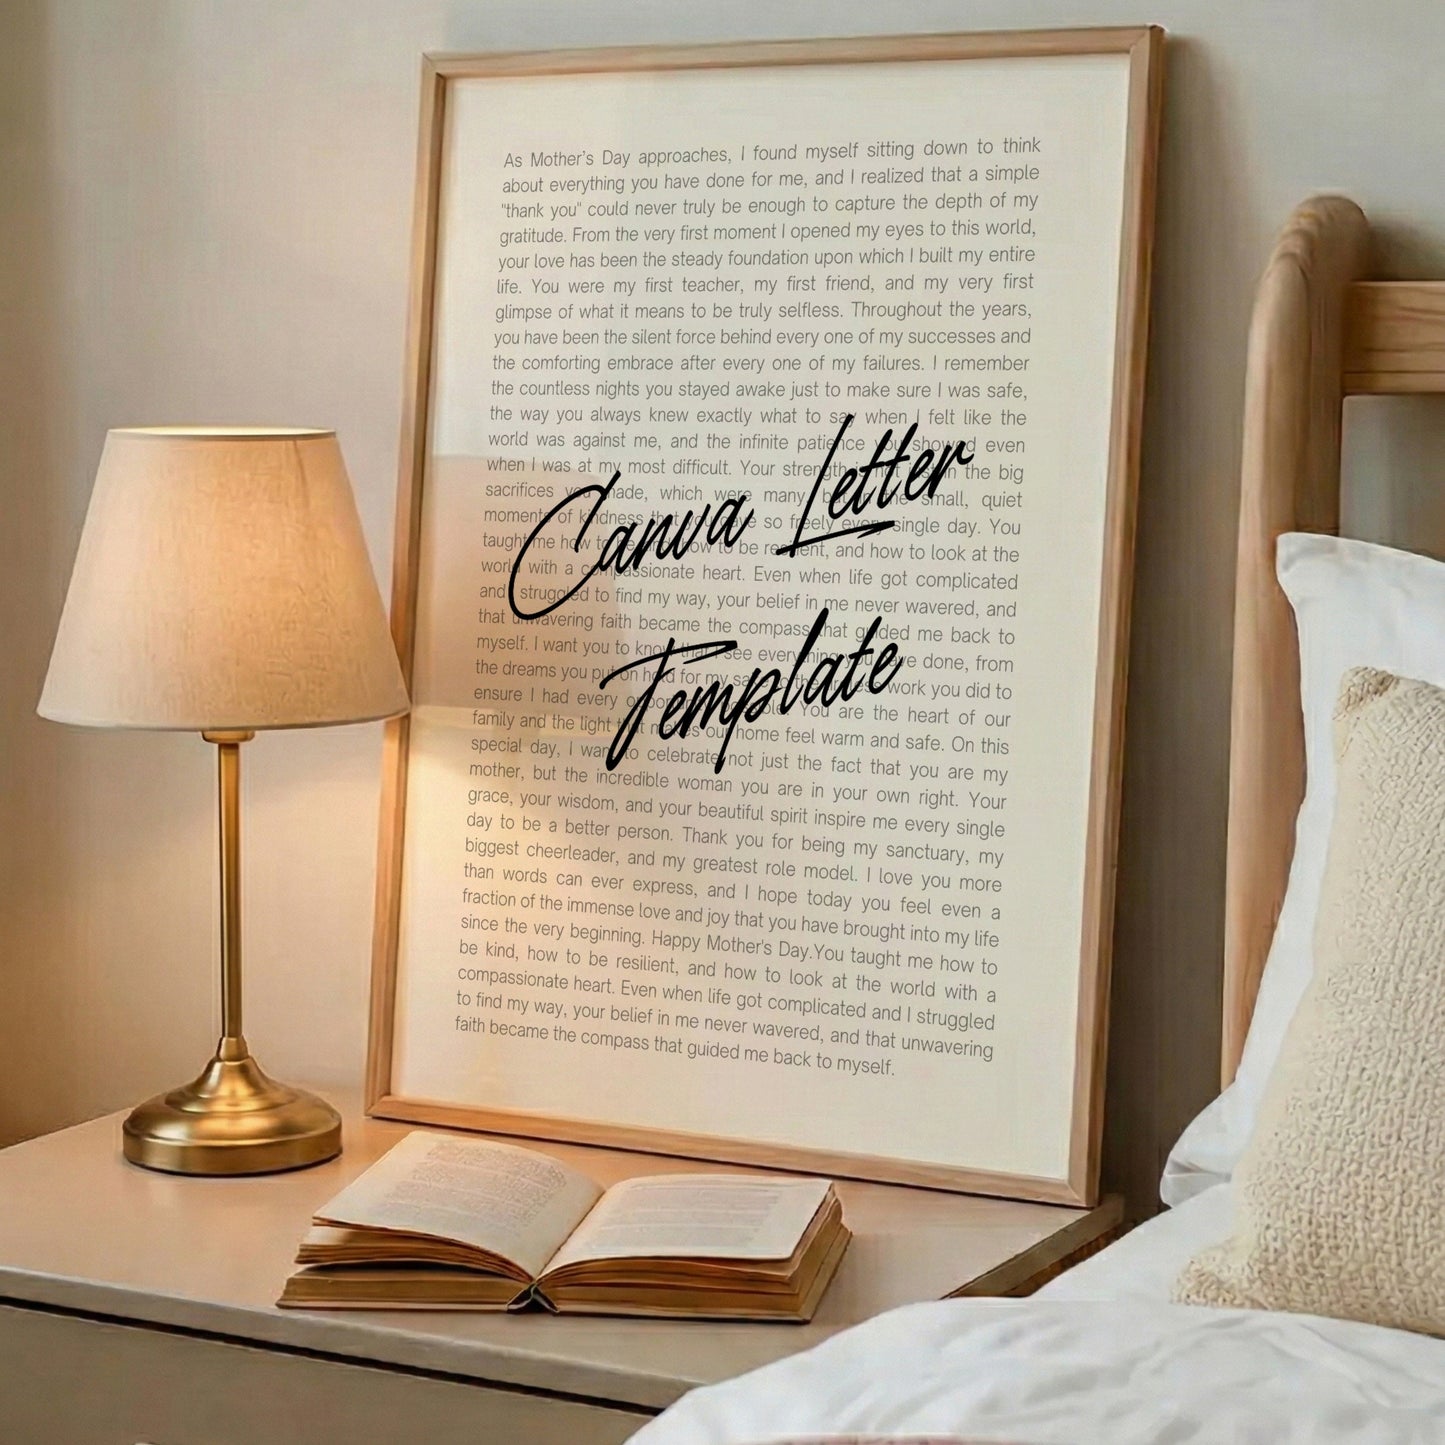 As Mother's Day approaches, I found myself sitting down to think
about everything you have done for me, and I realized that a simple
"thank you" could never truly be enough to capture the depth of my
gratitude. From the very first moment I opened my eyes to this world,
your love has been the steady foundation upon which I built my entire
life. You were my first teacher, my first friend, and my very first
glimpse of what it means to be truly selfless. Throughout the years,
you have been the silent force behind every one of my successes and
the comforting embrace after every one of my failures. I remember
the countless nights you stayed awake just to make sure I was safe,
the way you always knew exactly what to say when I felt like the
world was against me, and the infinite patience you showed even
when I was at my most difficult. Your strength is not just in the big
sacrifices you made, which were many, but in the small, quiet
moments of kindness that you gave so freely every single day. You
taught me how to be kind, how to be resilient, and how to look at the
world with a compassionate heart. Even when life got complicated
and I struggled to find my way, your belief in me never wavered, and
that unwavering faith became the compass that guided me back to
myself. I want you to know that I see everything you have done, from
the dreams you put on hold for my sake to the work you did to
ensure I had every You are the heart of our
family and the light that makes our home feel warm and safe. On this
special day, I want to celebrate not just the fact that you are my
mother, but the incredible woman you are in your own right. Your
grace, your wisdom, and your beautiful spirit inspire me every single
day to be a better person. Thank you for being my sanctuary, my
biggest cheerleader, and my greatest role model. I love you more
than words can ever express, and I hope today you feel even a
fraction of the immense love and joy that you have brought into my life
since the very beginning. Happy Mother's Day.You taught me how to
be kind, how to be resilient, and how to look at the world with a
compassionate heart. Even when life got complicated and I struggled
to find my way, your belief in me never wavered, and that unwavering
faith became the compass that guided me back to myself.
Canva Letter
Template